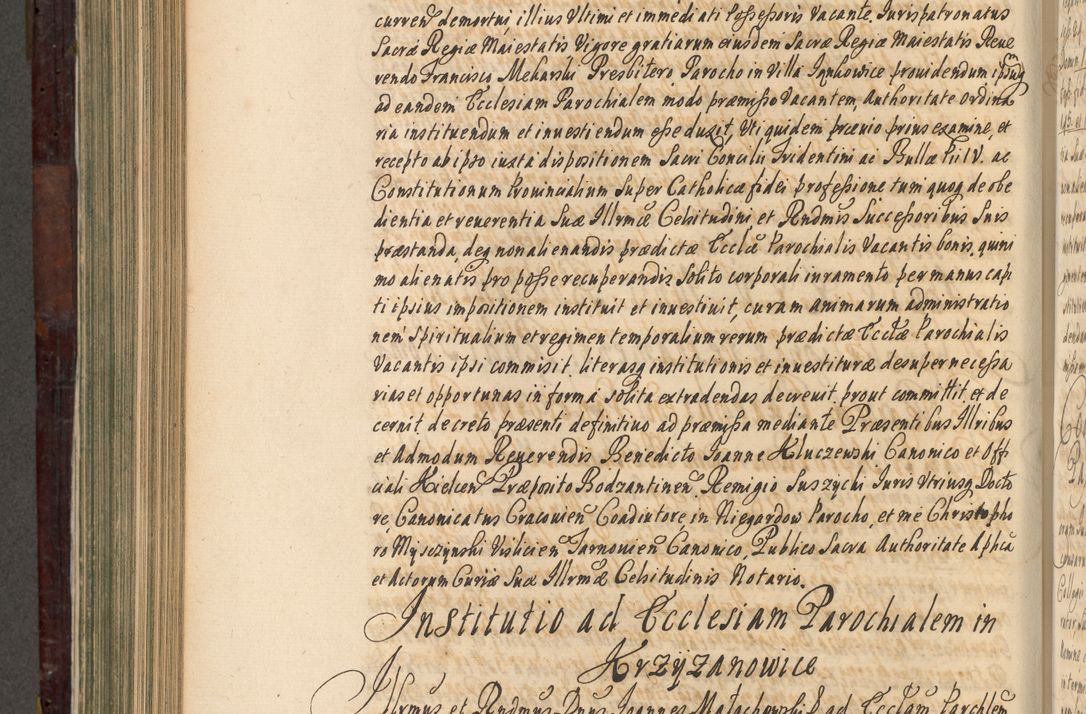 curren̄ demortui illius Ultimi et immediati Possessoris Vacante, Juris patronatus
Sacræ Regiæ Maiestatis Vigore gratiarum eiusdem Sacræ Regiæ Maiestatis Reue
rendo Francisco Mekarski Presbitero Parocho in Villa Jankowice prouidendum ipsūq
ad eandem Ecclesiam Parochialem modo præmisso Vacantem, Authoritate Ordina
ria instituendum et inuestiendum esse duxit, Uti quidem præuio prius examine, et
recepto ab ipso iuxta dispositionem Sacri Concilii Tridentini ac Bullæ Pii IV. ac
Constitutionum Prouincialium Super Catholicæ fidei professione tum quoq de obe
dientia et reuerentia Suæ Illrmæ Celsitudini et Rndmis Successoribus Suis
præstanda, deq non alienandis prædictæ Eccliæ Parochialis Vacantis bonis, quini
mo alienatis pro posse recuperandis Solito corporali iuramento per manus capi
ti ipsius impositionem instituit et inuestiuit, curam animarum administratio
nem Spiritualium et regimen temporalium rerum prædictæ Eccłæ Parochialis
Vacantis ipsi commisit, literasq institutionis et inuestituræ desuper necessa
rias et opportunas in forma solita extradendas decreuit, prout committit et de
cernit decreto præsenti definitiuo ad præmissa mediante Præsentibus Illribus
et Admodum Reuerendis Benedicto Joanne Kluczewski Canonico et Offi
ciali Kielcen̄ Præposito Bodzantinen̄ Remigio Suszycki Juris Utriusq Docto
re, Canonicatus Cracouien̄ Coadiutore, in Niegardow Parocho, et me Christopho
ro Mysczynski Vislicien̄ Tarnouien̄ Canonico, Publico Sacra Authoritate Aplica
et Actorum Curiæ Suæ Illrmæ Celsitudinis Notario.
Institutio ad Ecclesiam Parochialem in
Krzyzanowice
Illrmus et Rndmus Dnus Joannes Małachowski &c ad Eccłam Parchlem